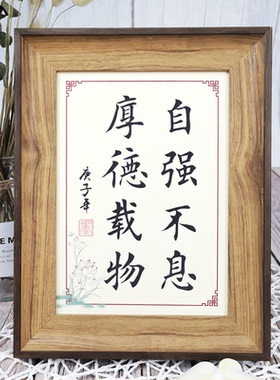 自强不息
厚德载物
庚子年